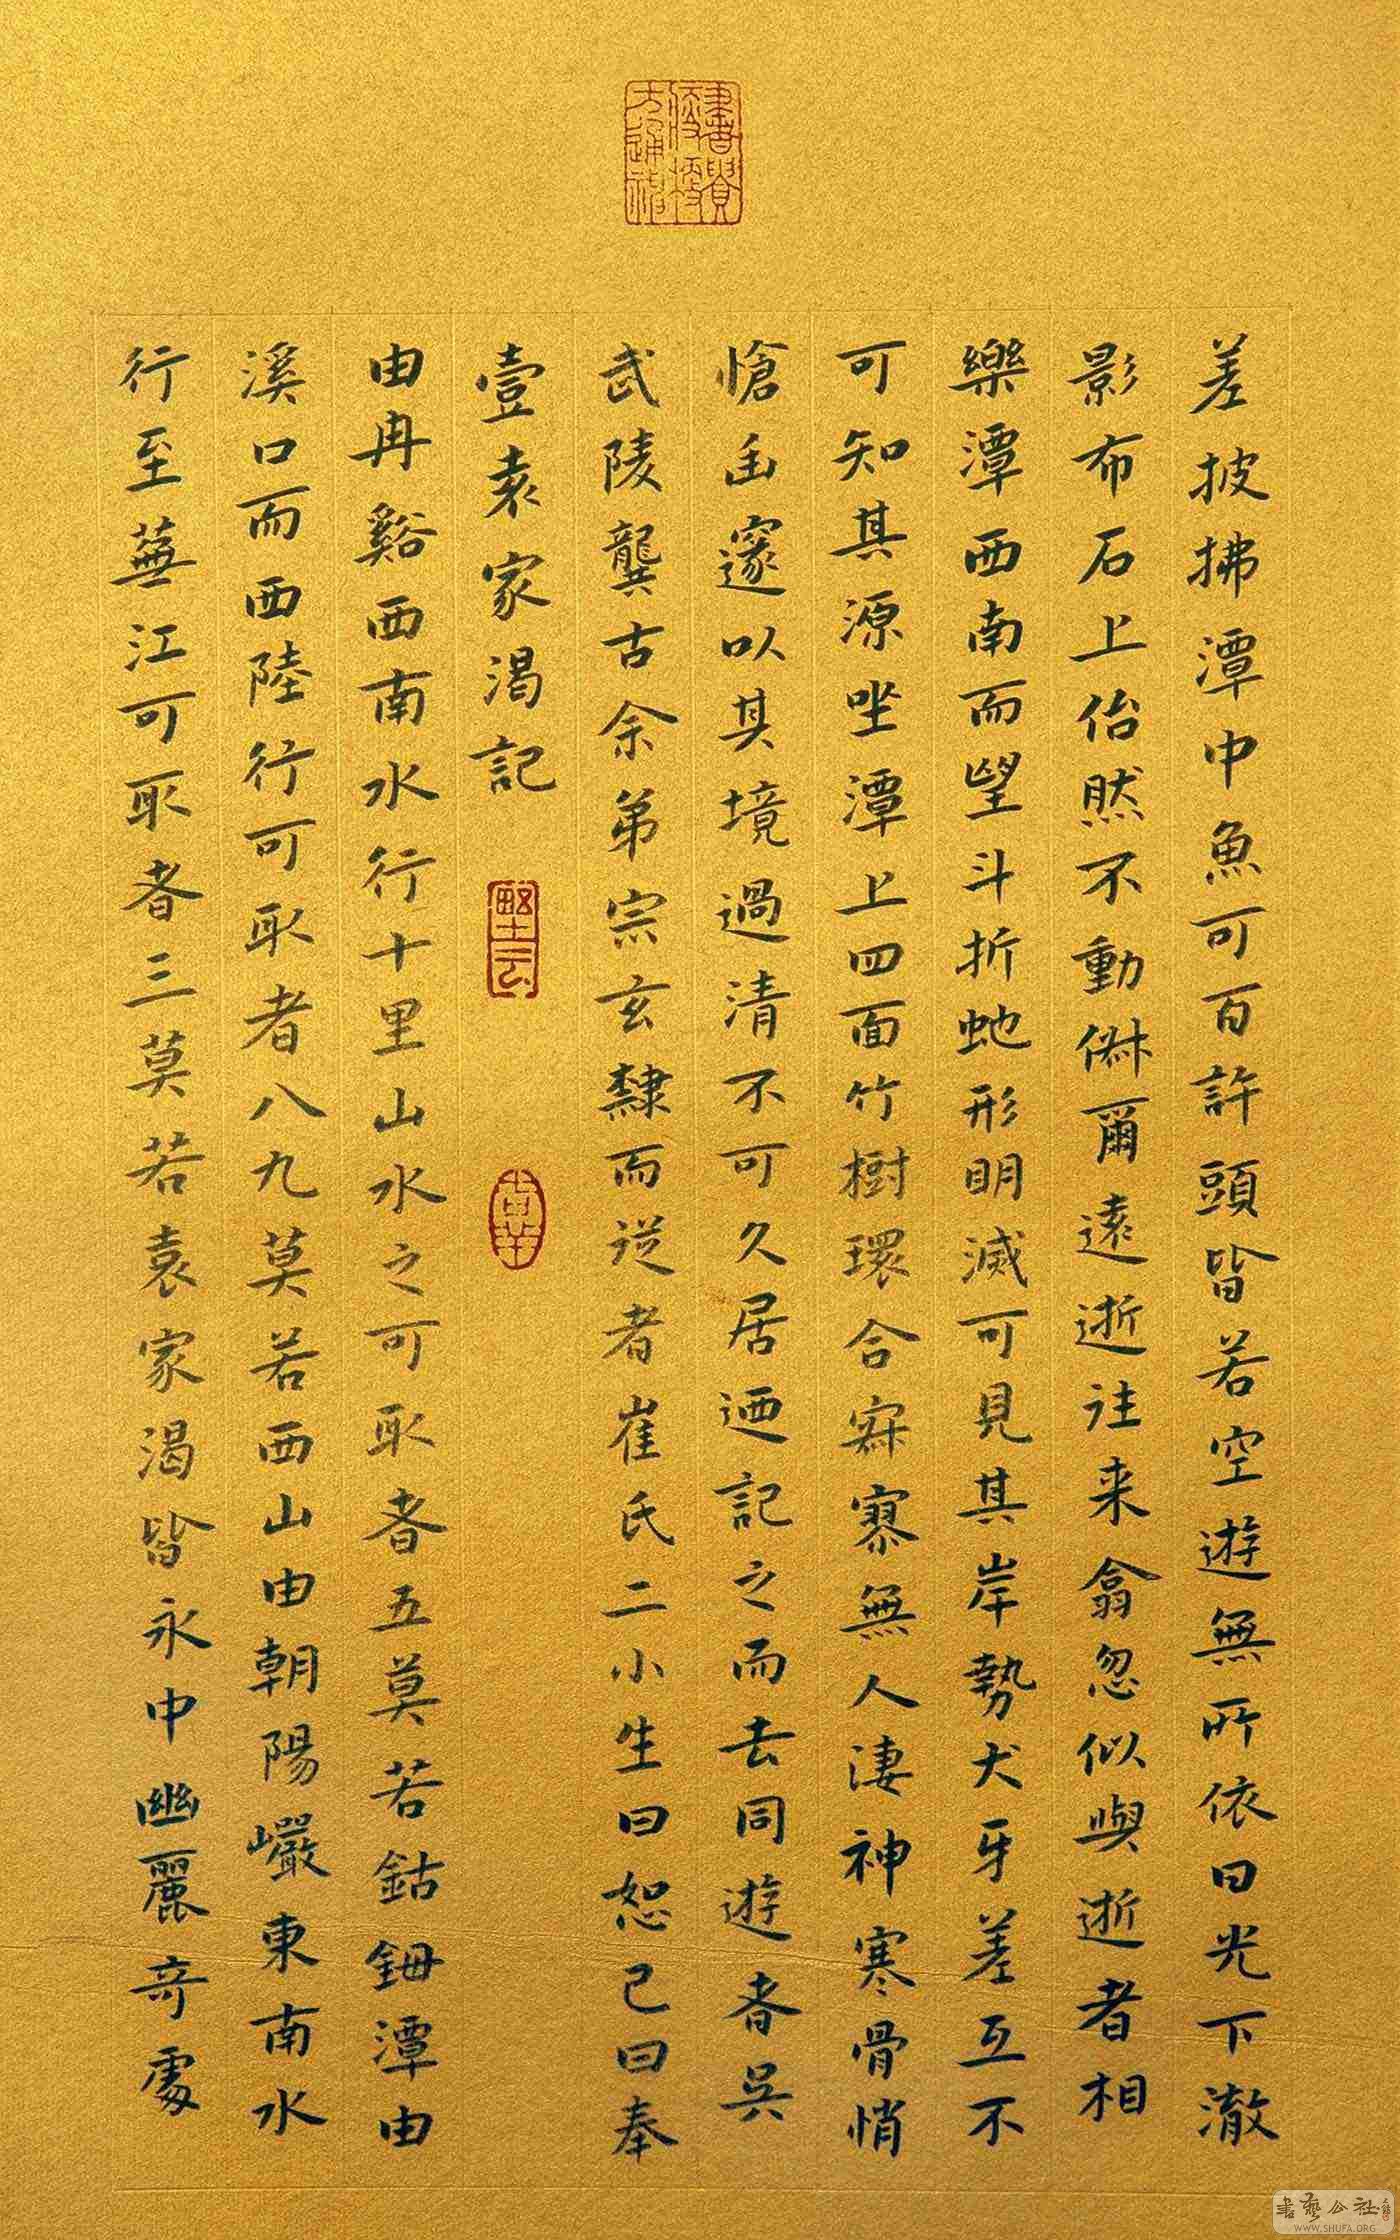 差披拂潭中魚可百許頭皆若空遊無所依日光下澈
影布石上佁然不動俶爾遠逝往来翕忽似與逝者相
樂潭西南而望斗折虵形明滅可見其岸勢犬牙差互不
可知其源坐潭上四面竹樹環合寂寥無人淒神寒骨悄
愴幽邃以其境過清不可久居迺記之而去同遊者吳
武陵龔古余弟宗玄隸而從者崔氏二小生曰恕己曰奉
壹袁家渴記
由冉谿西南水行十里山水之可取者五莫若鈷鉧潭由
溪口而西陸行可取者八九莫若西山由朝陽巖東南水
行至蕪江可取者三莫若袁家渴皆永中幽麗奇處
書藝公社
WWW.SHUFA.ORG